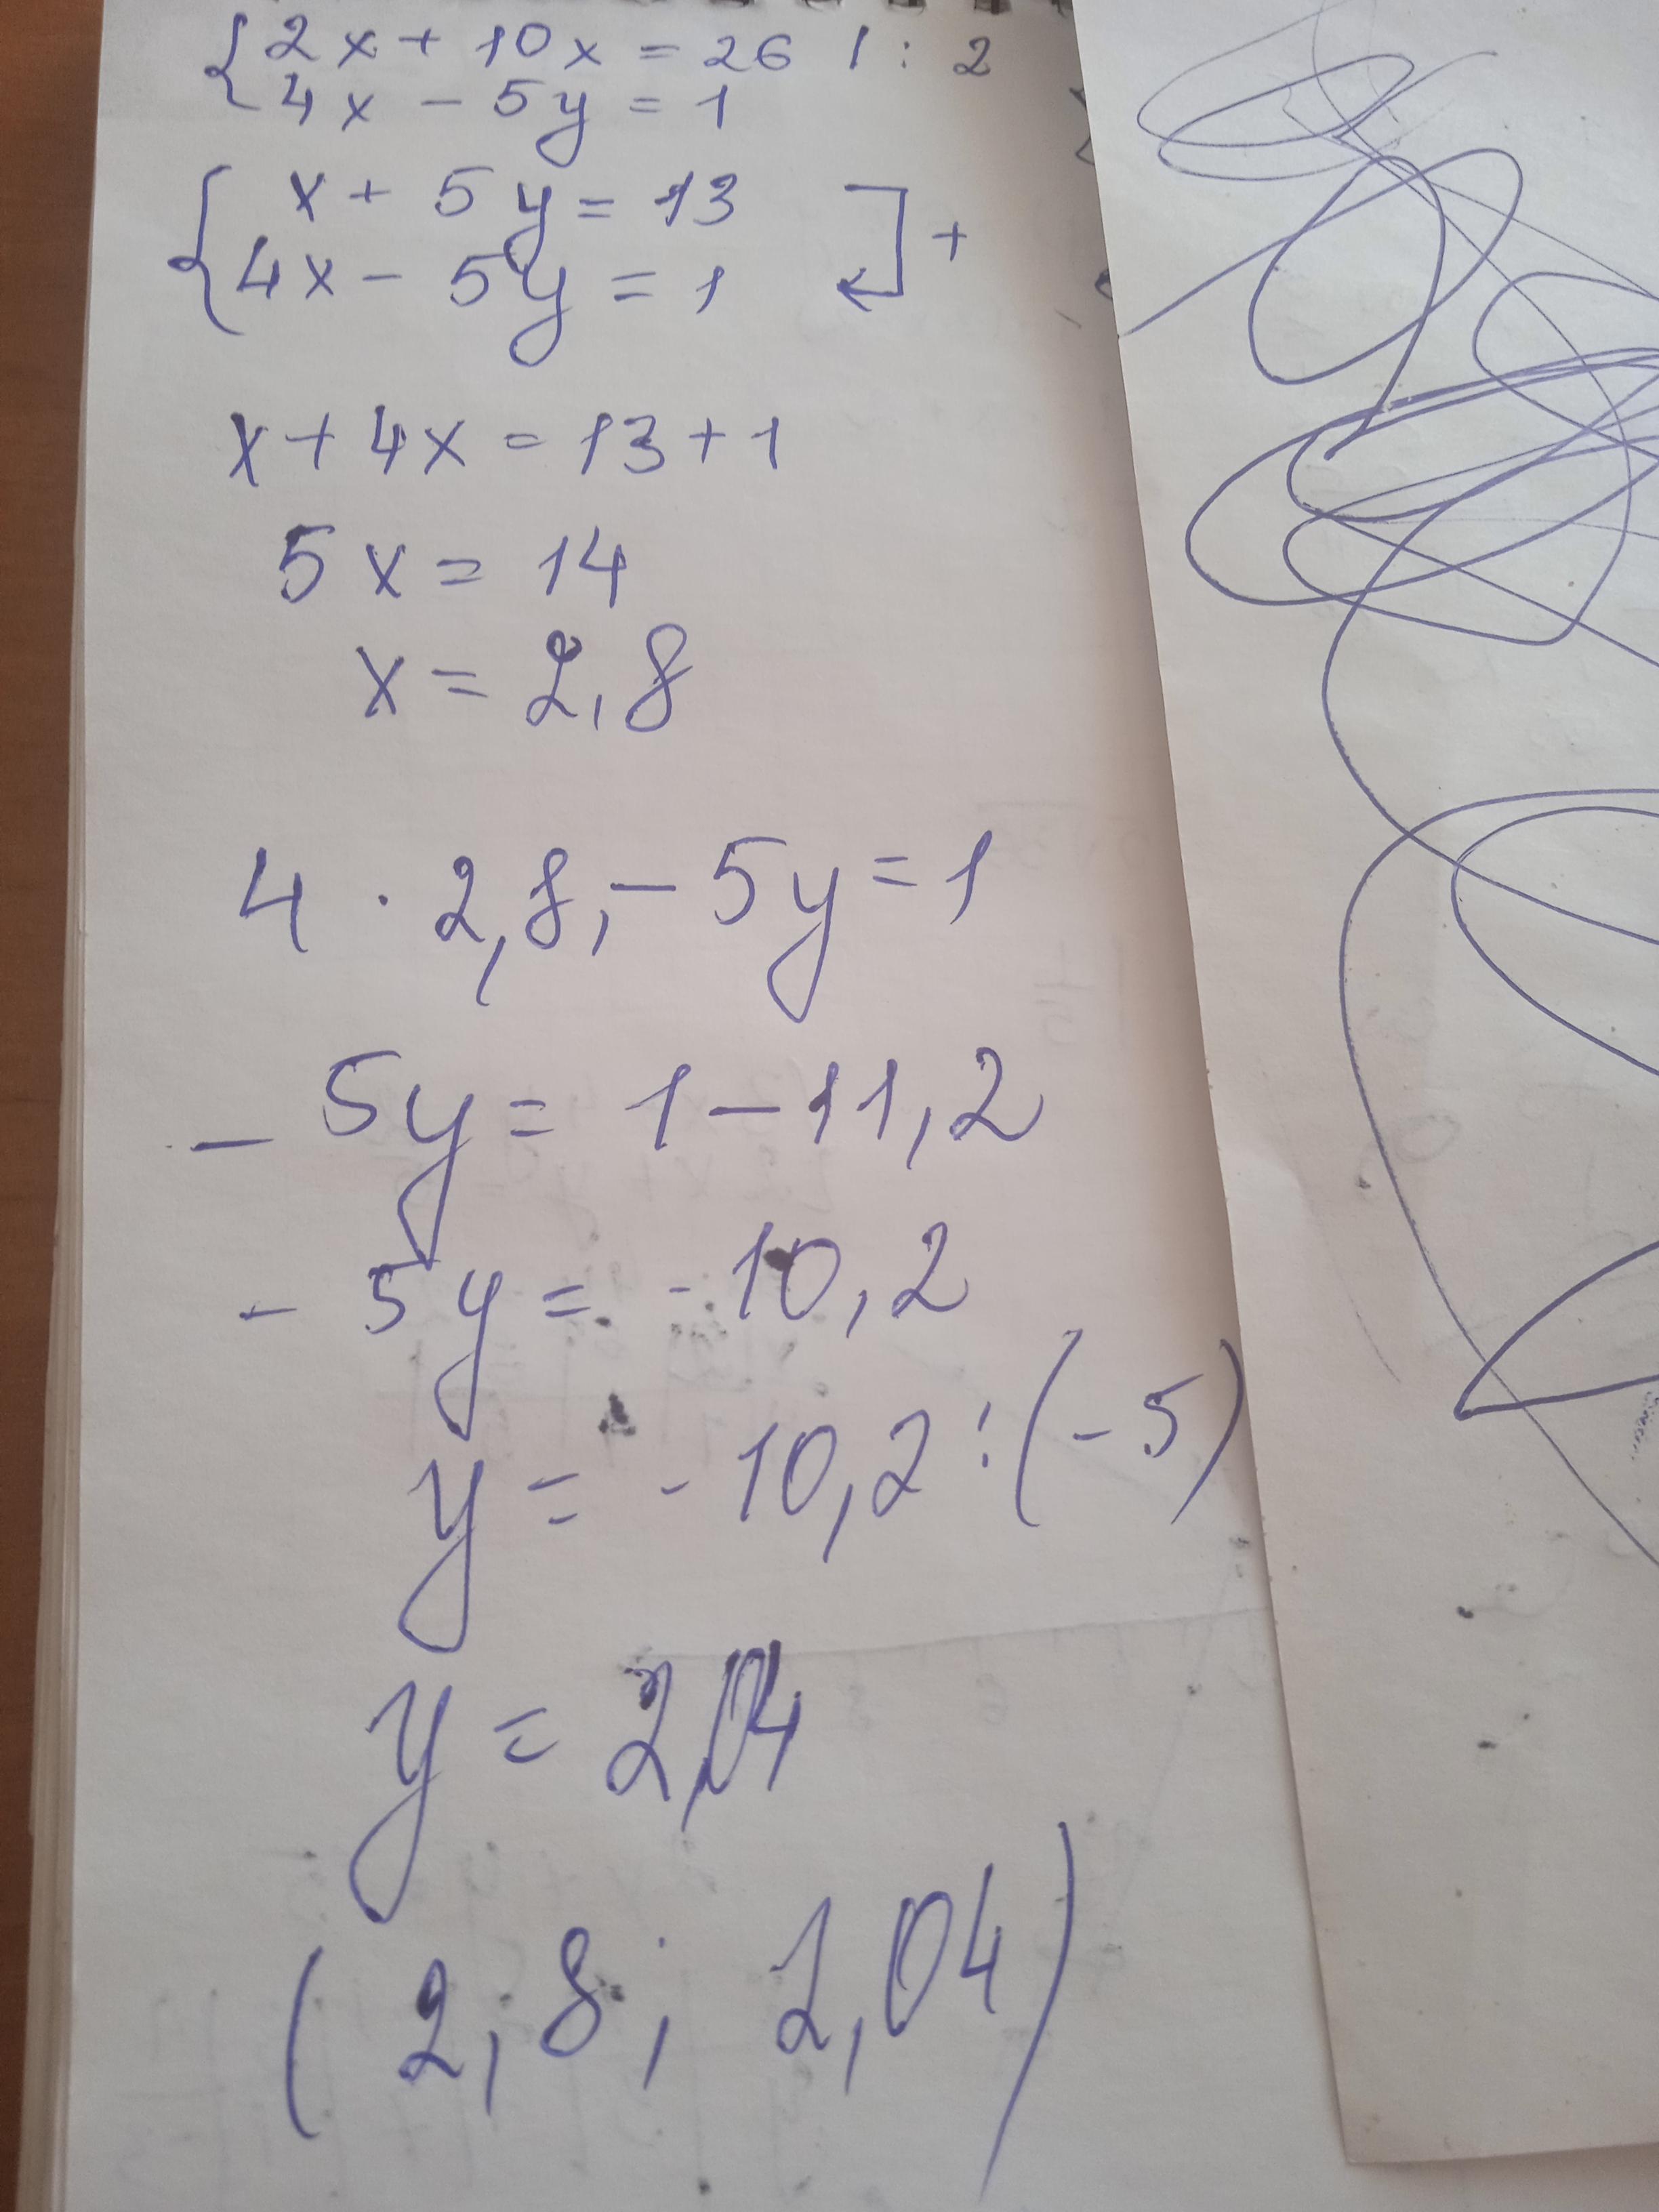 { 2x + 10x = 26 | : 2
4x - 5y = 1
{ x + 5y = 13
4x - 5y = 1 ] +
x + 4x = 13 + 1
5x = 14
x = 2,8
4 · 2,8, - 5y = 1
- 5y = 1 - 11,2
- 5y = - 10,2
y = - 10,2 : (-5)
y = 2,04
(2,8; 2,04)